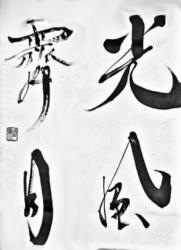 光風
霽月